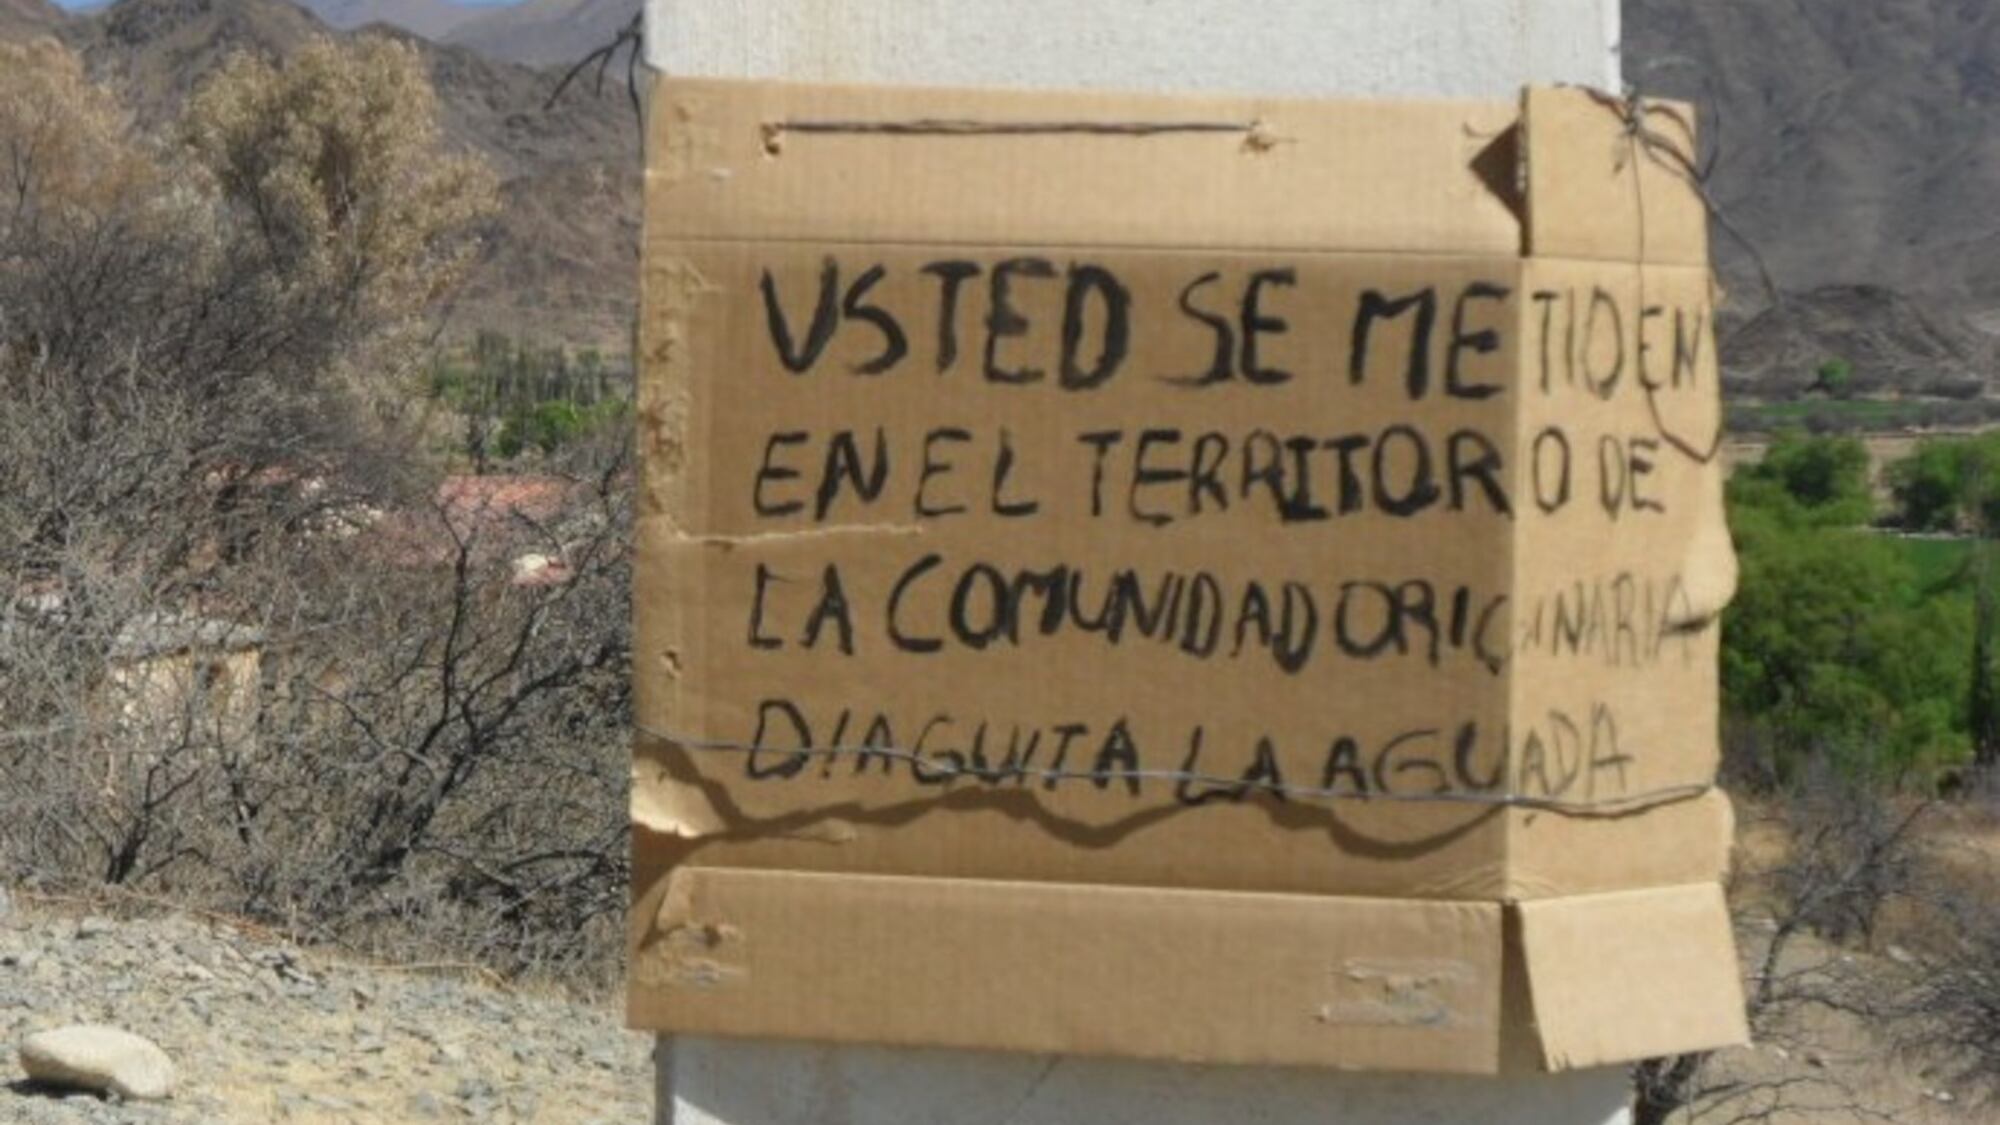 USTED SE METIO EN
EN EL TERRITORO DE
LA COMUNIDAD ORIGINARIA
DIAGUITA LA AGUADA